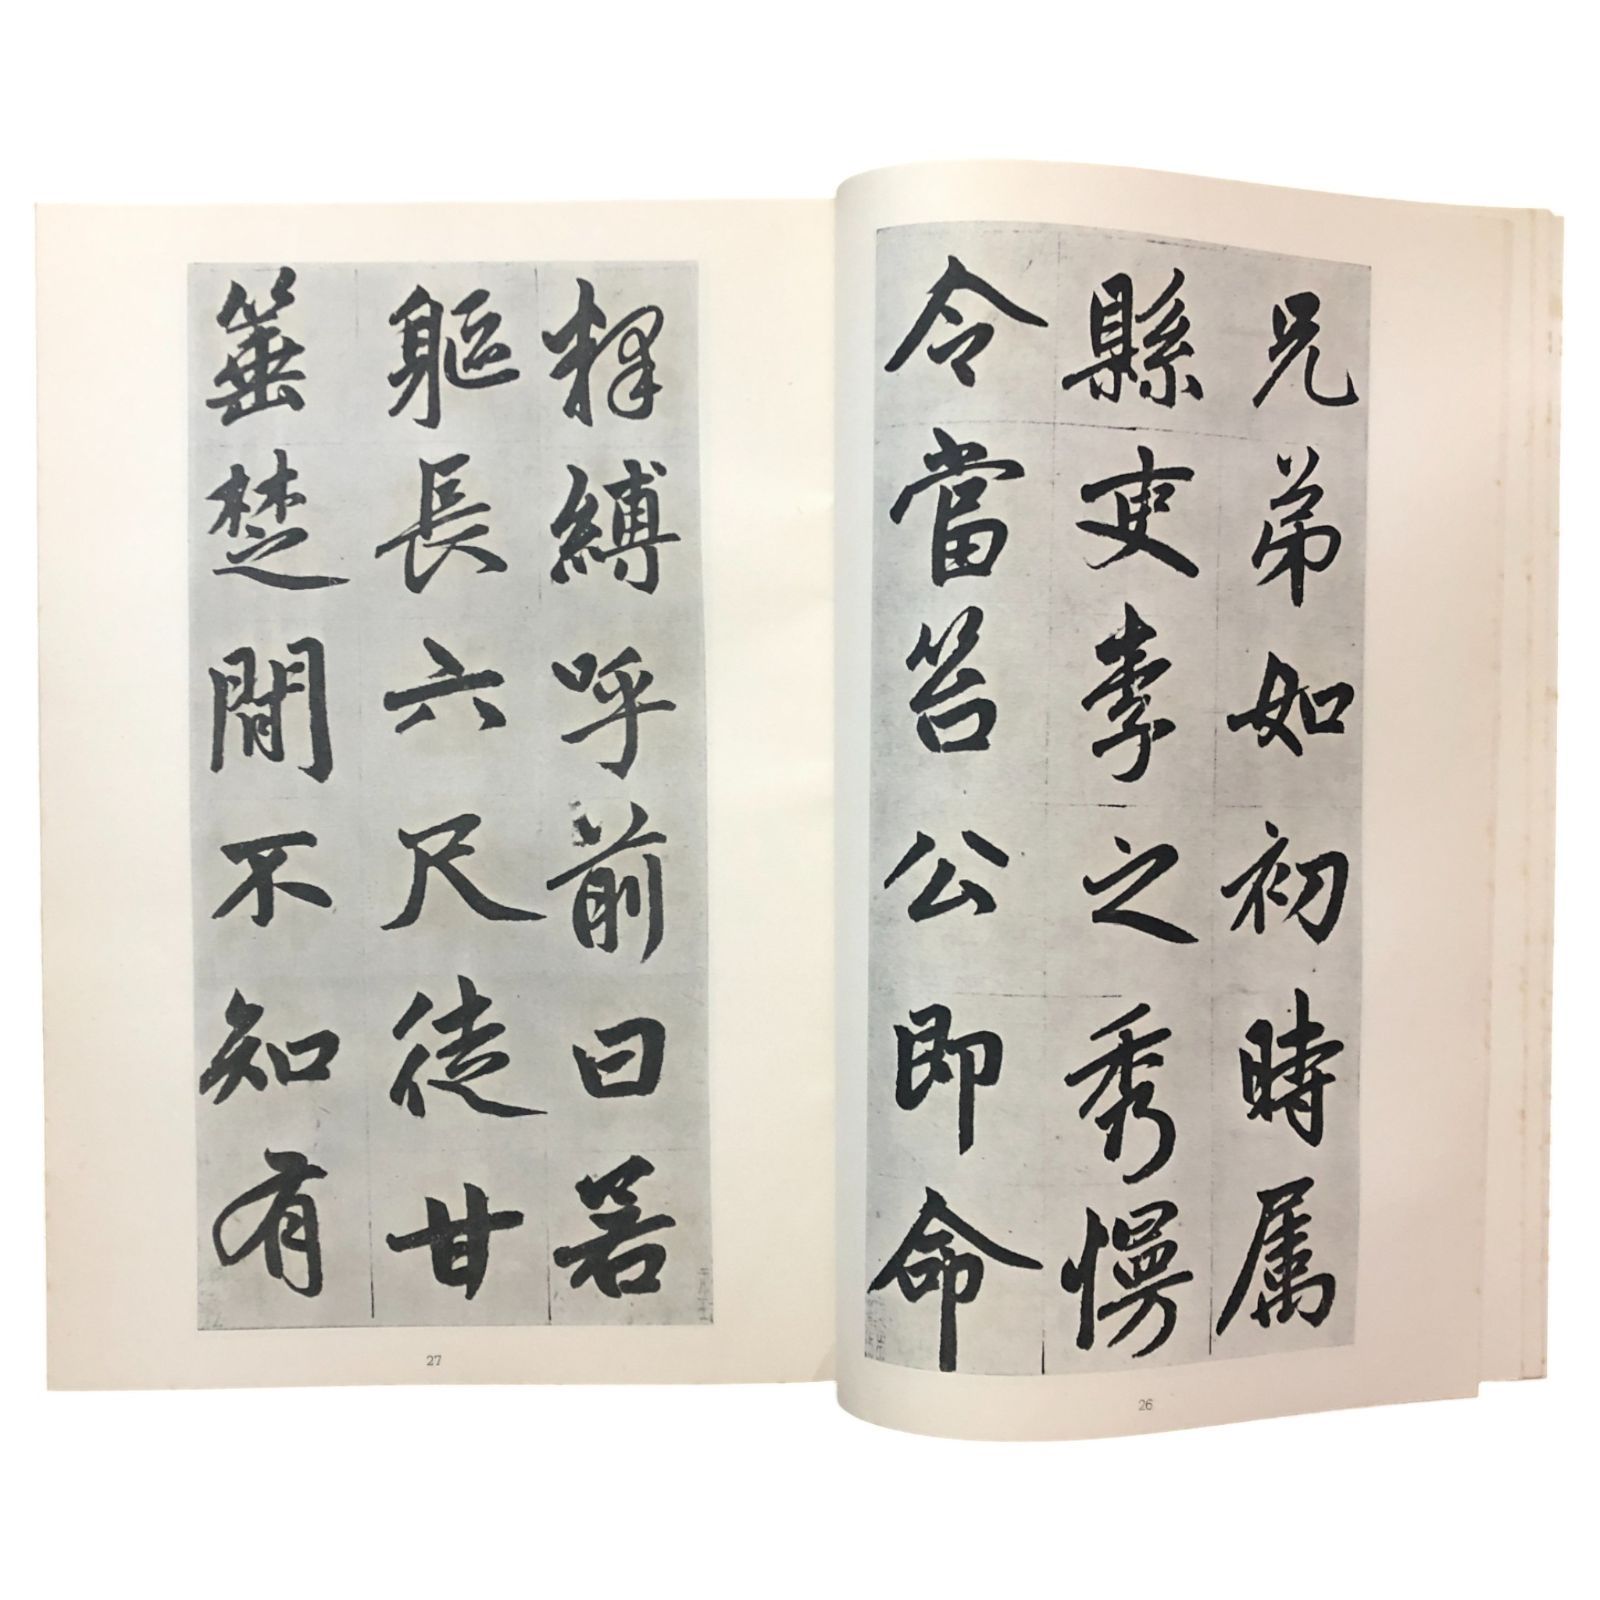 兄弟如初時属
縣吏李之秀慢
令當笞公即命
26
釋縛呼前曰若
軀長六尺徒甘
箠楚間不知有
27